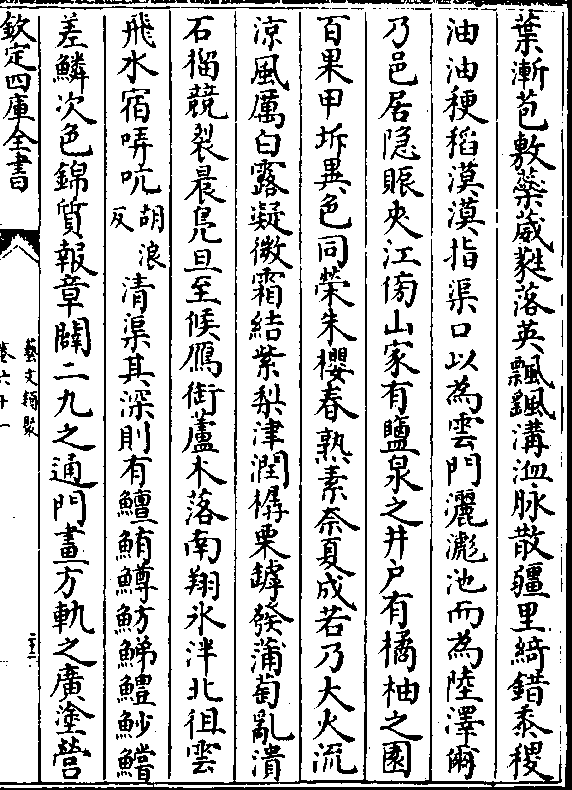 葉漸苞敷蘂葳蕤落英飄颻溝洫脉散疆里綺錯黍稷
油油稉稻漠漠指渠口以為雲門灑滮池而為陸澤爾
乃邑居隐賑夾江傍山家有鹽泉之井户有橘柚之園
百果甲坼異色同榮朱櫻春熟素奈夏成若乃大火流
涼風厲白露凝微霜結紫梨津潤樼栗罅發蒲萄亂潰
石榴競裂晨鳧旦至候鴈銜蘆木落南翔氷泮北徂雲
飛水宿哢吭胡浪反清渠其深則有鱣鮪鱒魴鮷鱧魦鱨
差鱗次色錦質報章闢二九之通門畫方軌之廣塗營
欽定四庫全書
藝文類聚
卷六十一